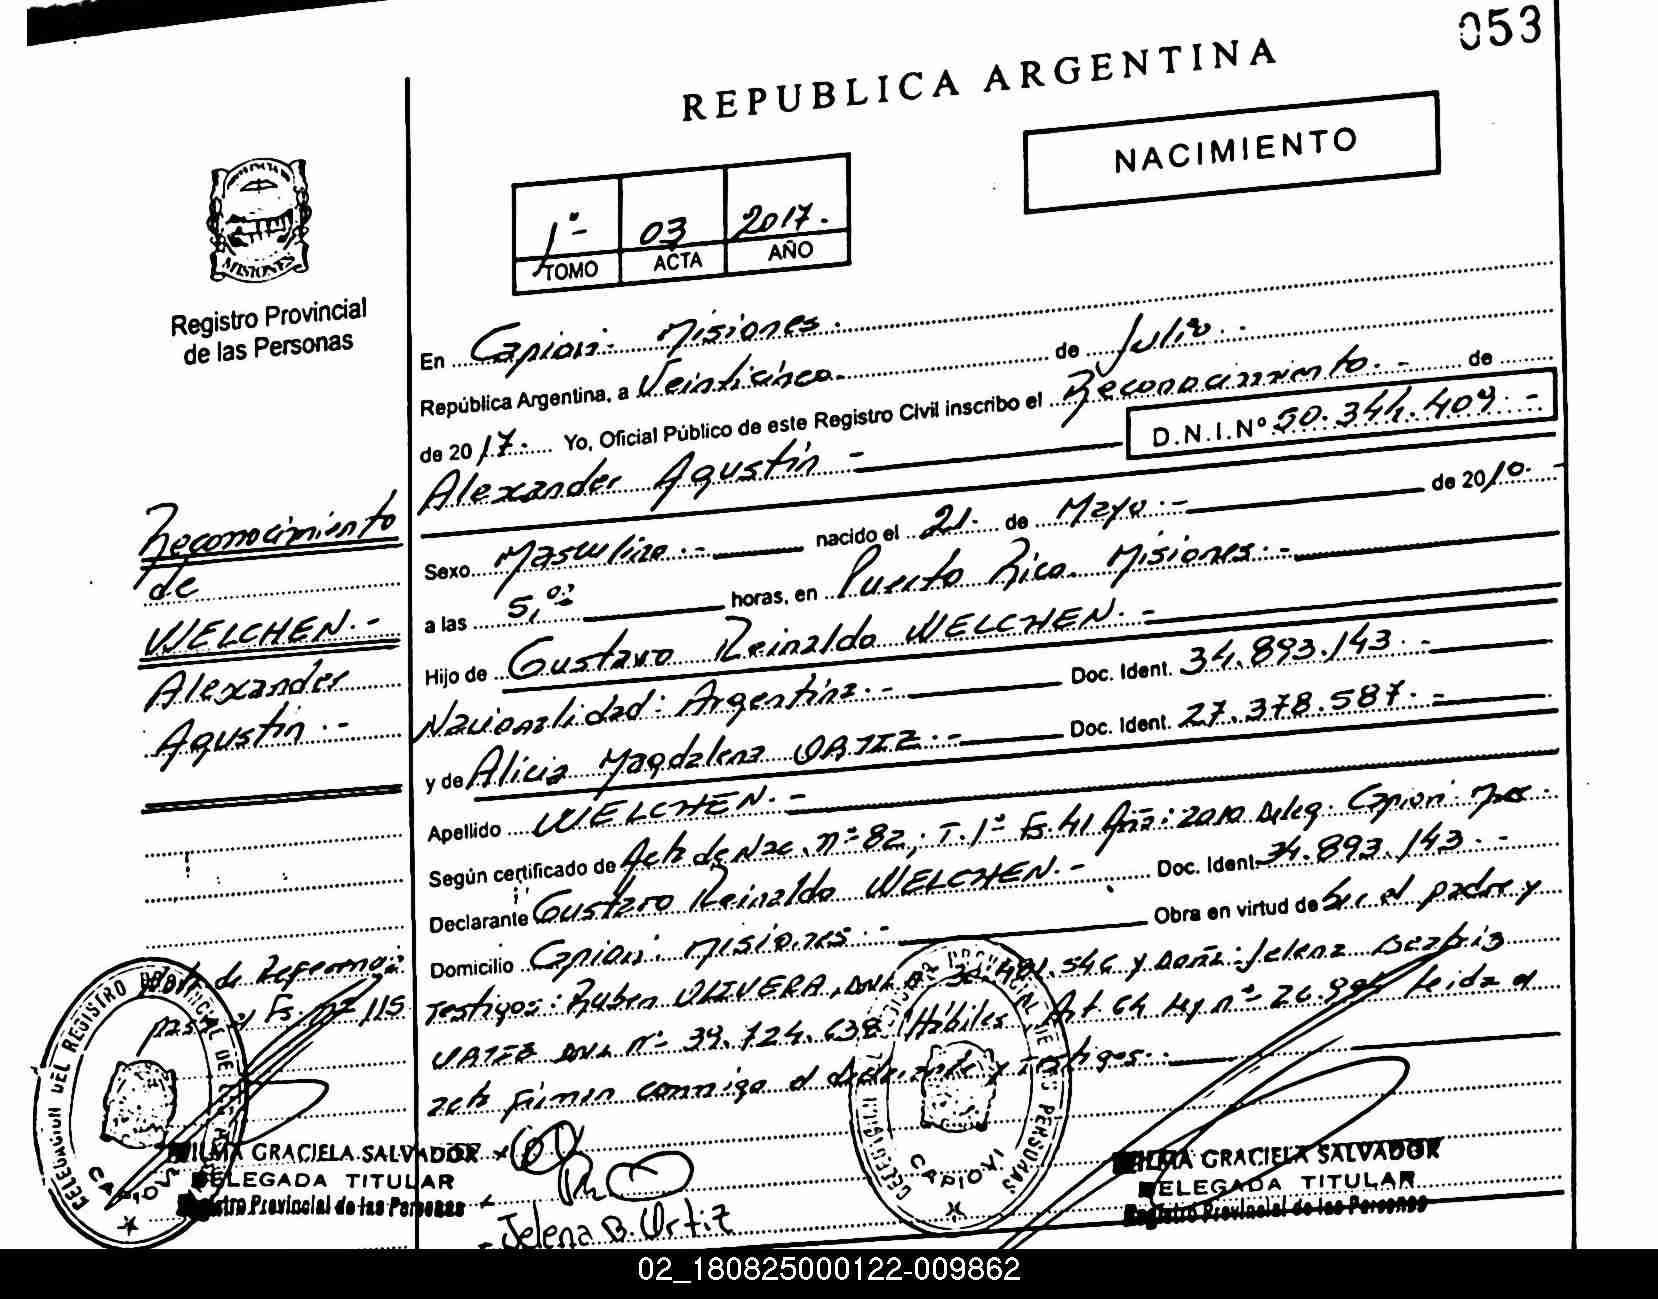 053
REPUBLICA ARGENTINA
NACIMIENTO
1º 03 2017.
TOMO ACTA AÑO
MISIONES
Registro Provincial
de las Personas
En Capioví Misiones.
República Argentina, a Veinticinco.- de Julio.
de 2017. Yo, Oficial Público de este Registro Civil inscribo el Reconocimiento.- de
D.N.I.Nº 50.344.409.-
Alexander Agustín -
Sexo Masculino.- nacido el 21. de Mayo.- de 2010.-
a las 5,00 horas, en Puerto Rico. Misiones.-
Hijo de Gustavo Reinaldo WELCHEN.-
Nacionalidad: Argentina.- Doc. Ident. 34.893.143.-
y de Alicia Magdalena ORTIZ.- Doc. Ident. 27.378.587.-
Apellido WELCHEN.-
Según certificado de Acta de Nac. nº 82; T. 1º Fs. 41 Año: 2010 Deleg. Capioví
Declarante Gustavo Reinaldo WELCHEN.- Doc. Ident. 34.893.143.-
Domicilio Capioví Misiones.- Obra en virtud de Ser el padre y
Testigos: Ruben OLIVERA, DNI y Doña: Jelena Beatriz
ORTIZ DNI nº 39.724.638 Hábiles Art 64 Ley nº 26.994 leida el
acta firman conmigo el declarante y testigos.-
Reconocimiento
de
WELCHEN.-
Alexander
Agustín.-
de Referencia:
Fs. nº 115
DELEGACION DEL REGISTRO PROVINCIAL DE LAS PERSONAS
CAPIOVI
WILMA GRACIELA SALVADOR
DELEGADA TITULAR
Registro Provincial de las Personas
Jelena B. Ortiz
DELEGACION DEL REGISTRO PROVINCIAL DE LAS PERSONAS
CAPIOVI
WILMA GRACIELA SALVADOR
DELEGADA TITULAR
Registro Provincial de las Personas
02_180825000122-009862